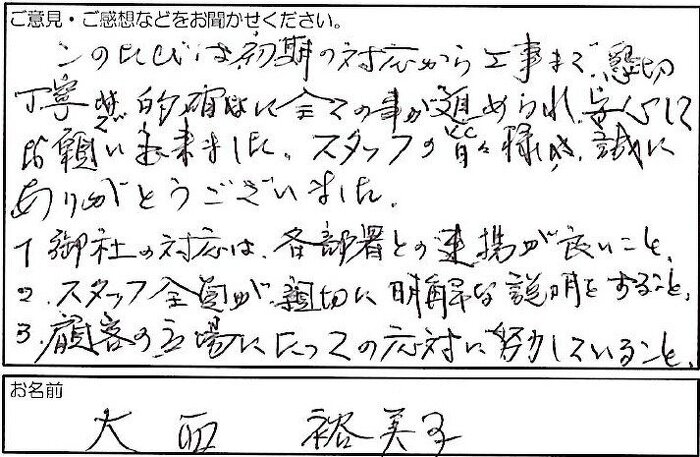 ご意見・ご感想などをお聞かせください。
このたびは、初期の対応から工事まで、懇切
丁寧で的確に全ての事が進められ、安心して
お願い出来ました。スタッフの皆々様には、誠に
ありがとうございました。
1 御社の対応は、各部署との連携が良いこと、
2. スタッフ全員が、親切に明解な説明をすること、
3. 顧客の立場にたっての応対に努力していること、
お名前
大 裕美子